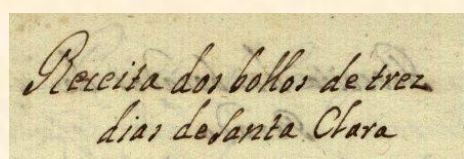 Receita dos bollos de trez
dias de Santa Clara